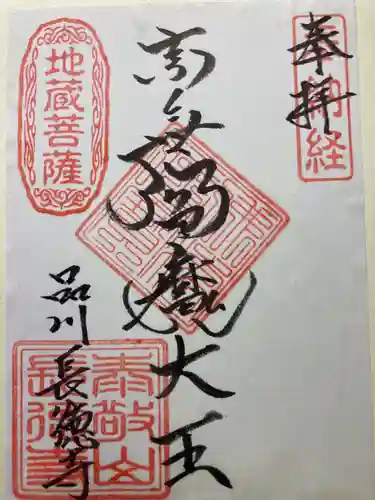 奉拝
納経
南無閻魔大王
地蔵菩薩
品川 長徳寺